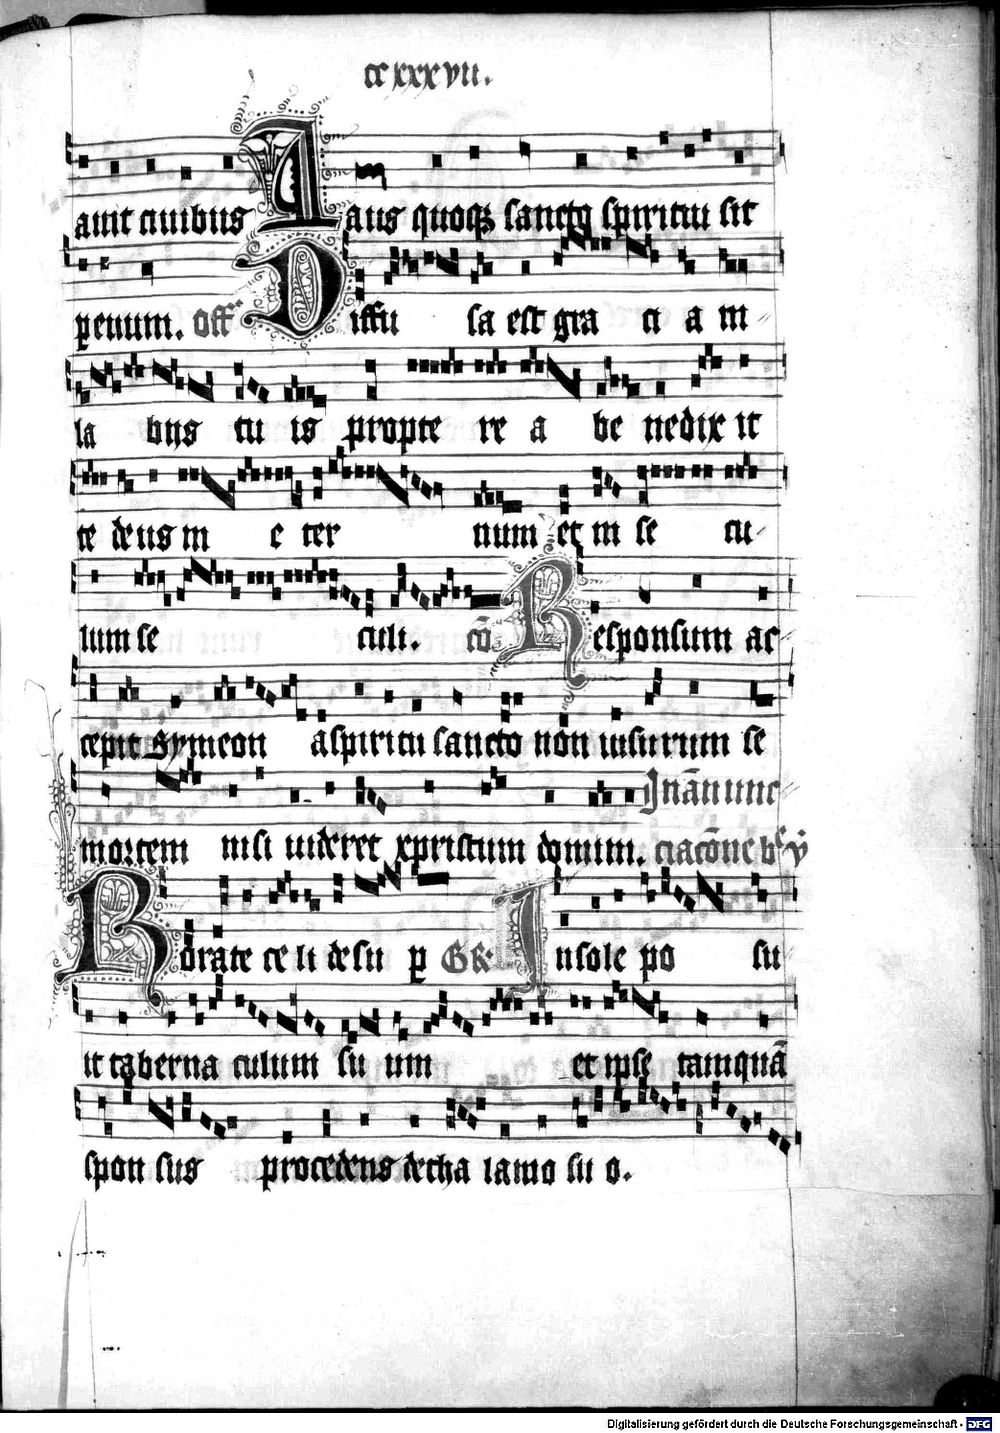 cc xxx vii.
auit ciuibus Laus quoqꝫ sanctꝫ spiritui sit
ꝑ euum. Off Diffu sa est gra ci a in
la biis tu is propte re a be nedix it
te deus in e ter num et in se cu
lum se culi. cō Responsum ac
cepit Symeon a spiritu sancto non uisurum se
In ānunc
mortem nisi uideret xpristum domum. ciacōne
Rorate ce li de su ꝑ GR In sole po su
it taberna culum su um et ipse tamquā
spon sus procedens de tha lamo su o.
Digitalisierung gefördert durch die Deutsche Forschungsgemeinschaft - DFG